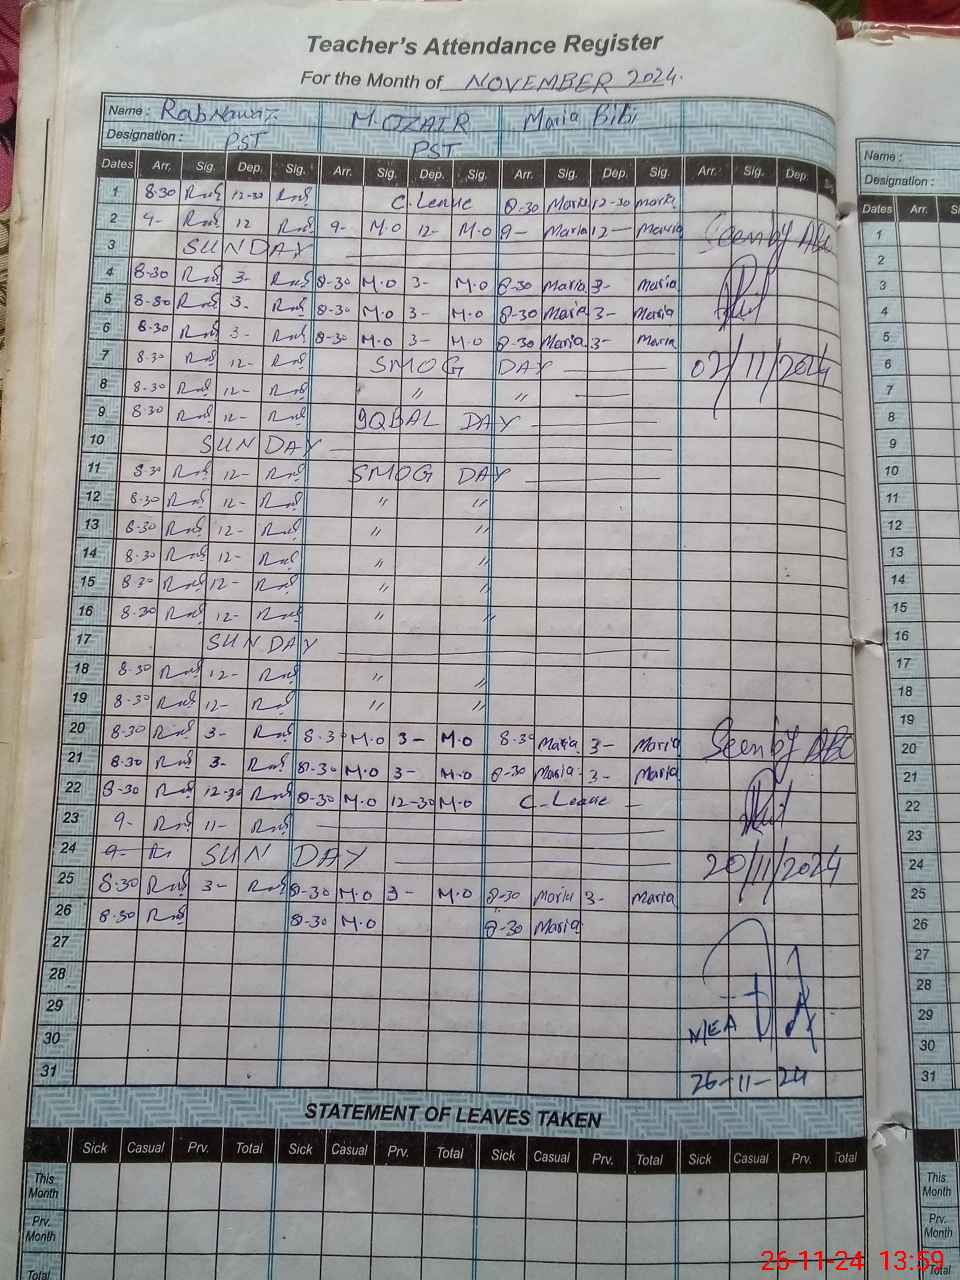 Teacher's Attendance Register
For the Month of NOVEMBER 2024.
Name : Rab Nawaz. M.OZAIR Maria Bibi
Designation : PST PST
Dates Arr. Sig. Dep. Sig. Arr. Sig. Dep. Sig. Arr. Sig. Dep. Sig. Arr. Sig. Dep. Sig
1 8-30 12-30 C. Leave 8-30 Maria 12-30 Maria
2 9- 12 9- M.O 12- M.O 9- Maria 12- Maria
3 SUNDAY
4 8-30 3- 8-30 M.O 3- M.O 8-30 Maria 3- Maria
5 8-30 3- 8-30 M.O 3- M.O 8-30 Maria 3- Maria
6 8-30 3- 8-30 M.O 3- M.O 8-30 Maria 3- Maria
7 8-30 12- SMOG DAY
8 8-30 12- " "
9 8-30 12- IQBAL DAY
10 SUNDAY
11 8-30 12- SMOG DAY
12 8-30 12- " "
13 8-30 12- " "
14 8-30 12- " "
15 8-30 12- " "
16 8-30 12- " "
17 SUNDAY
18 8-30 12- " "
19 8-30 12- " "
20 8-30 3- 8-30 M.O 3- M.O 8-30 Maria 3- Maria
21 8-30 3- 8-30 M.O 3- M.O 8-30 Maria 3- Maria
22 8-30 12-30 8-30 M.O 12-30 M.O C-Leave
23 9- 11-
24 9- SUNDAY
25 8-30 3- 8-30 M.O 3- M.O 8-30 Maria 3- Maria
26 8-30 8-30 M.O 8-30 Maria
27
28
29
30
31
Seen by
02/11/2024
Seen by
20/11/2024
MEA
26-11-24
STATEMENT OF LEAVES TAKEN
Sick Casual Prv. Total Sick Casual Prv. Total Sick Casual Prv. Total Sick Casual Prv. Total
This Month
Prv. Month
Total
Name :
Designation :
Dates Arr.
1
2
3
4
5
6
7
8
9
10
11
12
13
14
15
16
17
18
19
20
21
22
23
24
25
26
27
28
29
30
31
Sick
This Month
Prv. Month
Total
26-11-24 13:59